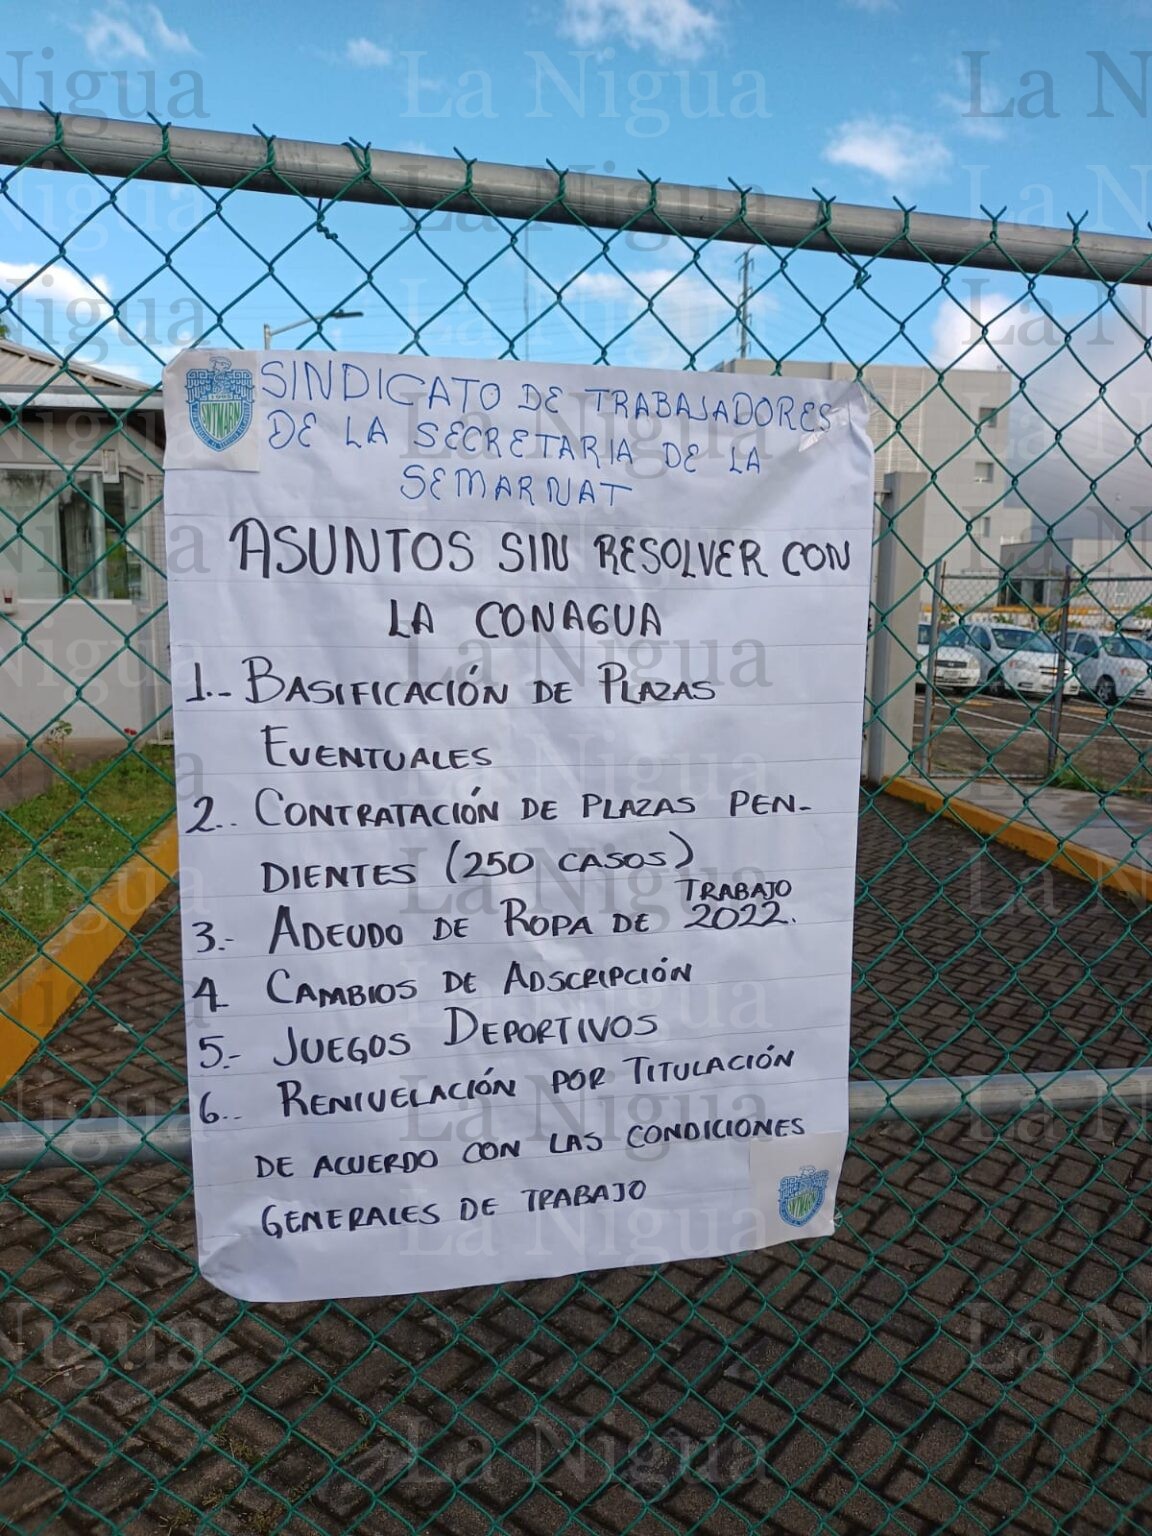 SINDICATO DE TRABAJADORES
DE LA SECRETARIA DE LA
SEMARNAT
ASUNTOS SIN RESOLVER CON
LA CONAGUA
1.- BASIFICACIÓN DE PLAZAS
EVENTUALES
2.. CONTRATACIÓN DE PLAZAS PEN-
DIENTES (250 CASOS)
3.- ADEUDO DE ROPA DE TRABAJO
2022.
4 CAMBIOS DE ADSCRIPCIÓN
5.- JUEGOS DEPORTIVOS
6.. RENIVELACIÓN POR TITULACIÓN
DE ACUERDO CON LAS CONDICIONES
GENERALES DE TRABAJO
La Nigua